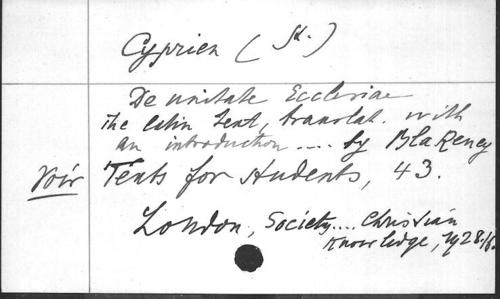 Cyprien (St.)
De unitate Ecclesiae
the latin text, translat. with
an introduction .... by Blakeney
Voir Texts for students, 43.
London, Society.... Christian
Knowledge, 1928.